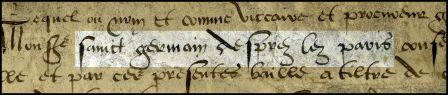 Lequel ou nom et comme viccaire et procureur
Monsr sainct germain desprez lez paris conse
et par ces presentes baille a tiltre de